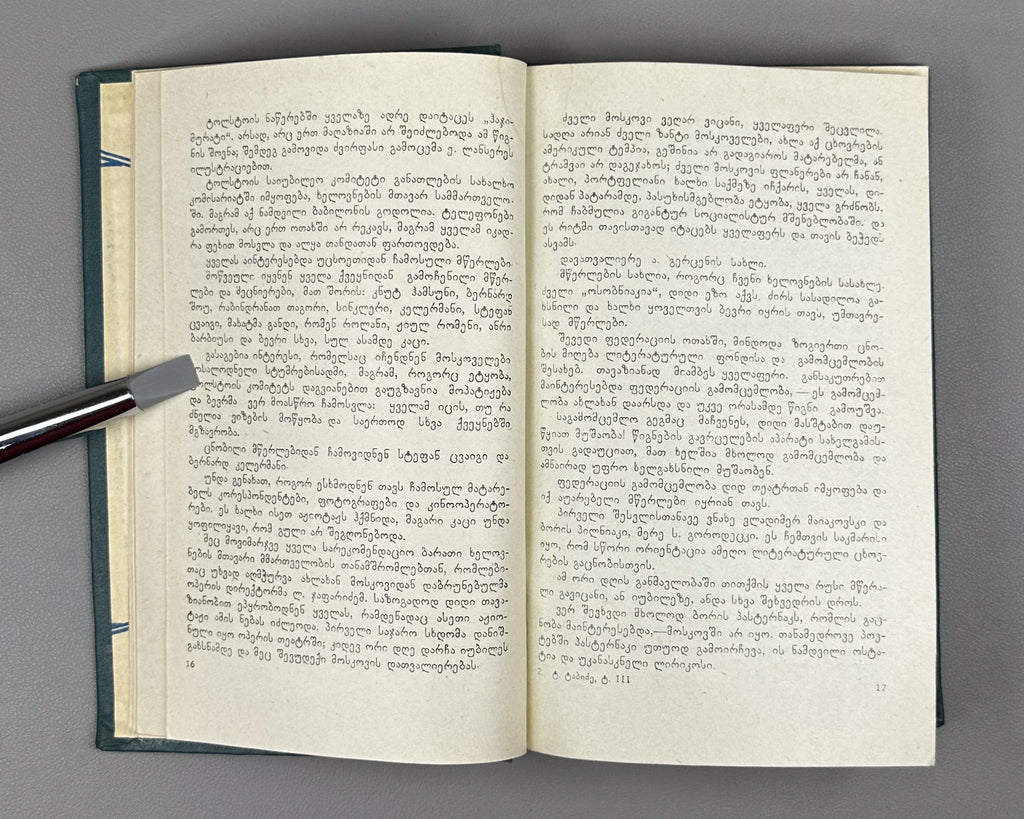 ტოლსტოის ნაწერებში ყველაზე ადრე დაიტაცეს „ჰაჯი-
მურატი“. არსად, არც ერთ მაღაზიაში არ შეიძლებოდა ამ წიგ-
ნის შოვნა; შემდეგ გამოვიდა ძვირფასი გამოცემა ე. ლანსერეს
ილუსტრაციებით.
ტოლსტოის საიუბილეო კომიტეტი განათლების სახალხო
კომისარიატში იმყოფება, ხელოვნების მთავარ სამმართველო-
ში. მაგრამ აქ ნამდვილი ბაბილონის გოდოლია. ტელეფონები
გამორთეს, არც ერთ ოთახში არ რეკავს, მაგრამ ყველამ იკად-
რა ფეხით მოსვლა და ალყა თანდათან ფართოვდება.
ყველას აინტერესებდა უცხოეთიდან ჩამოსული მწერლები.
მოწვეული იყვნენ ყველა ქვეყნიდან გამოჩენილი მწერ-
ლები და მეცნიერები, მათ შორის: კნუტ ჰამსუნი, ბერნარდ
შოუ, რაბინდრანათ თაგორი, სინკლერი, კელერმანი, სტეფან
ცვაიგი, მახატმა განდი, რომენ როლანი, ჟიულ რომენი, ანრი
ბარბიუსი და ბევრი სხვა, სულ ასამდე კაცი.
გასაგებია ინტერესი, რომელსაც იჩენდნენ მოსკოველები
მოსალოდნელი სტუმრებისადმი, მაგრამ, როგორც ეტყობა,
ტოლსტოის კომიტეტს დაგვიანებით გაუგზავნია მოპატიჟება
და ბევრმა ვერ მოასწრო ჩამოსვლა: ყველამ იცის, თუ რა
ძნელია ვიზების მოწყობა და საერთოდ სხვა ქვეყნებში
მგზავრობა.
ცნობილი მწერლებიდან ჩამოვიდნენ სტეფან ცვაიგი და
ბერნარდ კელერმანი.
უნდა გენახათ, როგორ ესხმოდნენ თავს ჩამოსულ მატარე-
ბელს კორესპონდენტები, ფოტოგრაფები და კინოოპერატო-
რები. ეს ხალხი ისეთ აჟიოტაჟს ჰქმნიდა, მაგარი კაცი უნდა
ყოფილიყავი, რომ გული არ შეგღონებოდა.
მეც მოვიმარჯვე ყველა სარეკომენდაციო ბარათი ხელოვ-
ნების მთავარი მმართველობის თანამშრომლებთან, რომლები-
თაც უხვად აღმჭურვა ახლახან მოსკოვიდან დაბრუნებულმა
ოპერის დირექტორმა ლ. ჯაფარიძემ. საზოგადოდ დიდი თავა-
ზიანობით ეპყრობოდნენ ყველას, რამდენადაც ასეთი აჟიო-
ტაჟი ამის ნებას იძლეოდა. პირველი საჯარო სხდომა დანიშ-
ნული იყო ოპერის თეატრში; კიდევ ორი დღე დარჩა იუბილეს
გახსნამდე და მეც შევუდექი მოსკოვის დათვალიერებას.
16
ძველი მოსკოვი ვეღარ ვიცანი, ყველაფერი შეცვლილა.
სადღა არიან ძველი ზანტი მოსკოველები, ახლა აქ ცხოვრების
ამერიკული ტემპია, გეშინია არ გადაგიაროს მატარებელმა, ან
ტრამვაი არ დაგეჯახოს; ძველი მოსკოვის ფლანერები არ ჩანან,
ახალი, პორტფელიანი ხალხი საქმეზე იჩქარის, ყველას, დი-
დიდან პატარამდე, პასუხისმგებლობა ეტყობა, ყველა გრძნობს,
რომ ჩაბმულია გიგანტურ სოციალისტურ მშენებლობაში. და
ეს რიტმი თავისთავად იტაცებს ყველაფერს და თავის ბეჭედს
ასვამს.
დავათვალიერე ა. გერცენის სახლი.
მწერლების სახლია, როგორც ჩვენი ხელოვნების სასახლე.
ძველი „ოსობნიაკია“, დიდი ეზო აქვს, ძირს სასადილოა გა-
ხსნილი და ხალხი ყოველთვის ბევრი იყრის თავს, უმთავრე-
სად მწერლები.
შევედი ფედერაციის ოთახში, მინდოდა ზოგიერთი ცნო-
ბის მიღება ლიტერატურული ფონდისა და გამომცემლობის
შესახებ. თავაზიანად მიამბეს ყველაფერი. განსაკუთრებით
მაინტერესებდა ფედერაციის გამომცემლობა, — ეს გამომცემ-
ლობა ახლახან დაარსდა და უკვე ორასამდე წიგნი გამოუშვა.
საგამომცემლო გეგმაც მაჩვენეს, დიდი მასშტაბით დაუ-
წყიათ მუშაობა! წიგნების გავრცელების აპარატი სახელგამის-
თვის გადაუციათ, მათ ხელშია მხოლოდ გამომცემლობა და
ამნაირად უფრო ხელგახსნილი მუშაობენ.
ფედერაციის გამომცემლობა დიდ თეატრთან იმყოფება და
იქ აუარებელი მწერლები იყრიან თავს.
პირველი შესვლისთანავე ვნახე ვლადიმერ მაიაკოვსკი და
ბორის პილნიაკი, მერე ს. გოროდეცკი. ეს ჩემთვის საკმარისი
იყო, რომ სწორი ორიენტაცია ამეღო ლიტერატურული ცხოვ-
რების გაცნობისთვის.
ამ ორი დღის განმავლობაში თითქმის ყველა რუსი მწერა-
ლი გავიცანი, ან იუბილეზე, ანდა სხვა შეხვედრის დროს.
ვერ შევხვდი მხოლოდ ბორის პასტერნაკს, რომლის გაც-
ნობა მაინტერესებდა,—მოსკოვში არ იყო. თანამედროვე პოე-
ტებში პასტერნაკი უთუოდ გამოირჩევა, ის ნამდვილი ოსტა-
ტია და უკანასკნელი ლირიკოსი.
2. ტ. ტაბიძე, ტ. III
17